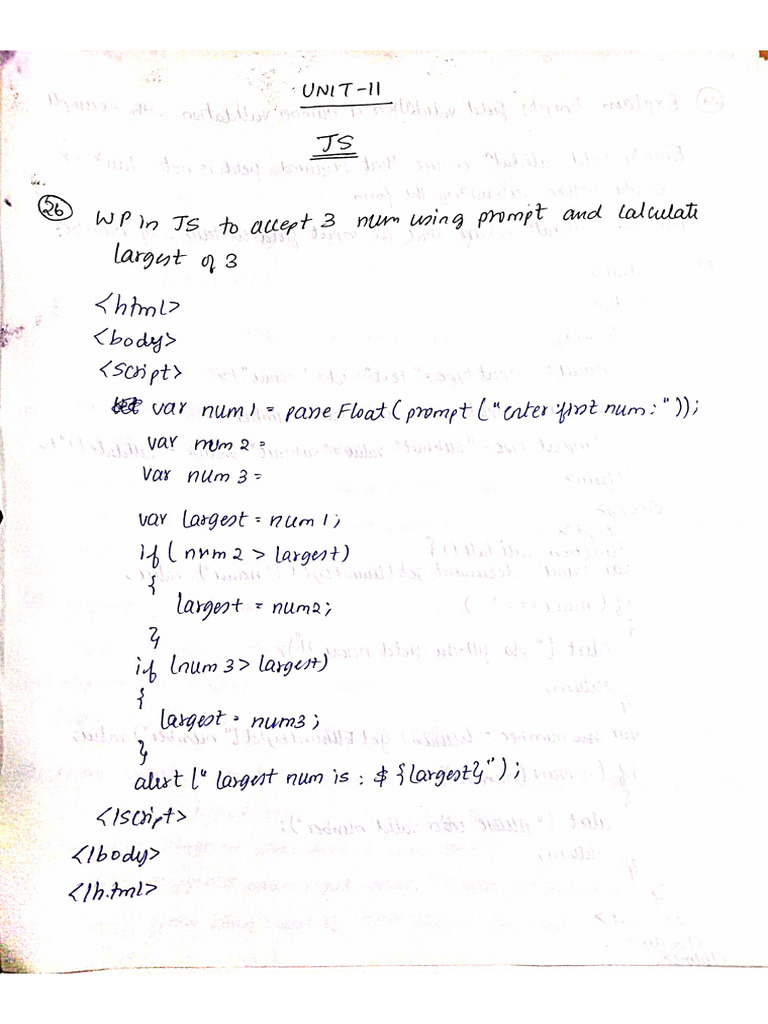 UNIT-II
JS
26 WP in JS to accept 3 num using prompt and calculate
largest of 3
<html>
<body>
<script>
var num1 = parseFloat(prompt("enter first num:"));
var num2 =
var num3 =
var largest = num1;
if(num2 > largest)
{
largest = num2;
}
if (num3 > largest)
{
largest = num3;
}
alert (" largest num is : ${largest}");
</script>
</body>
</html>